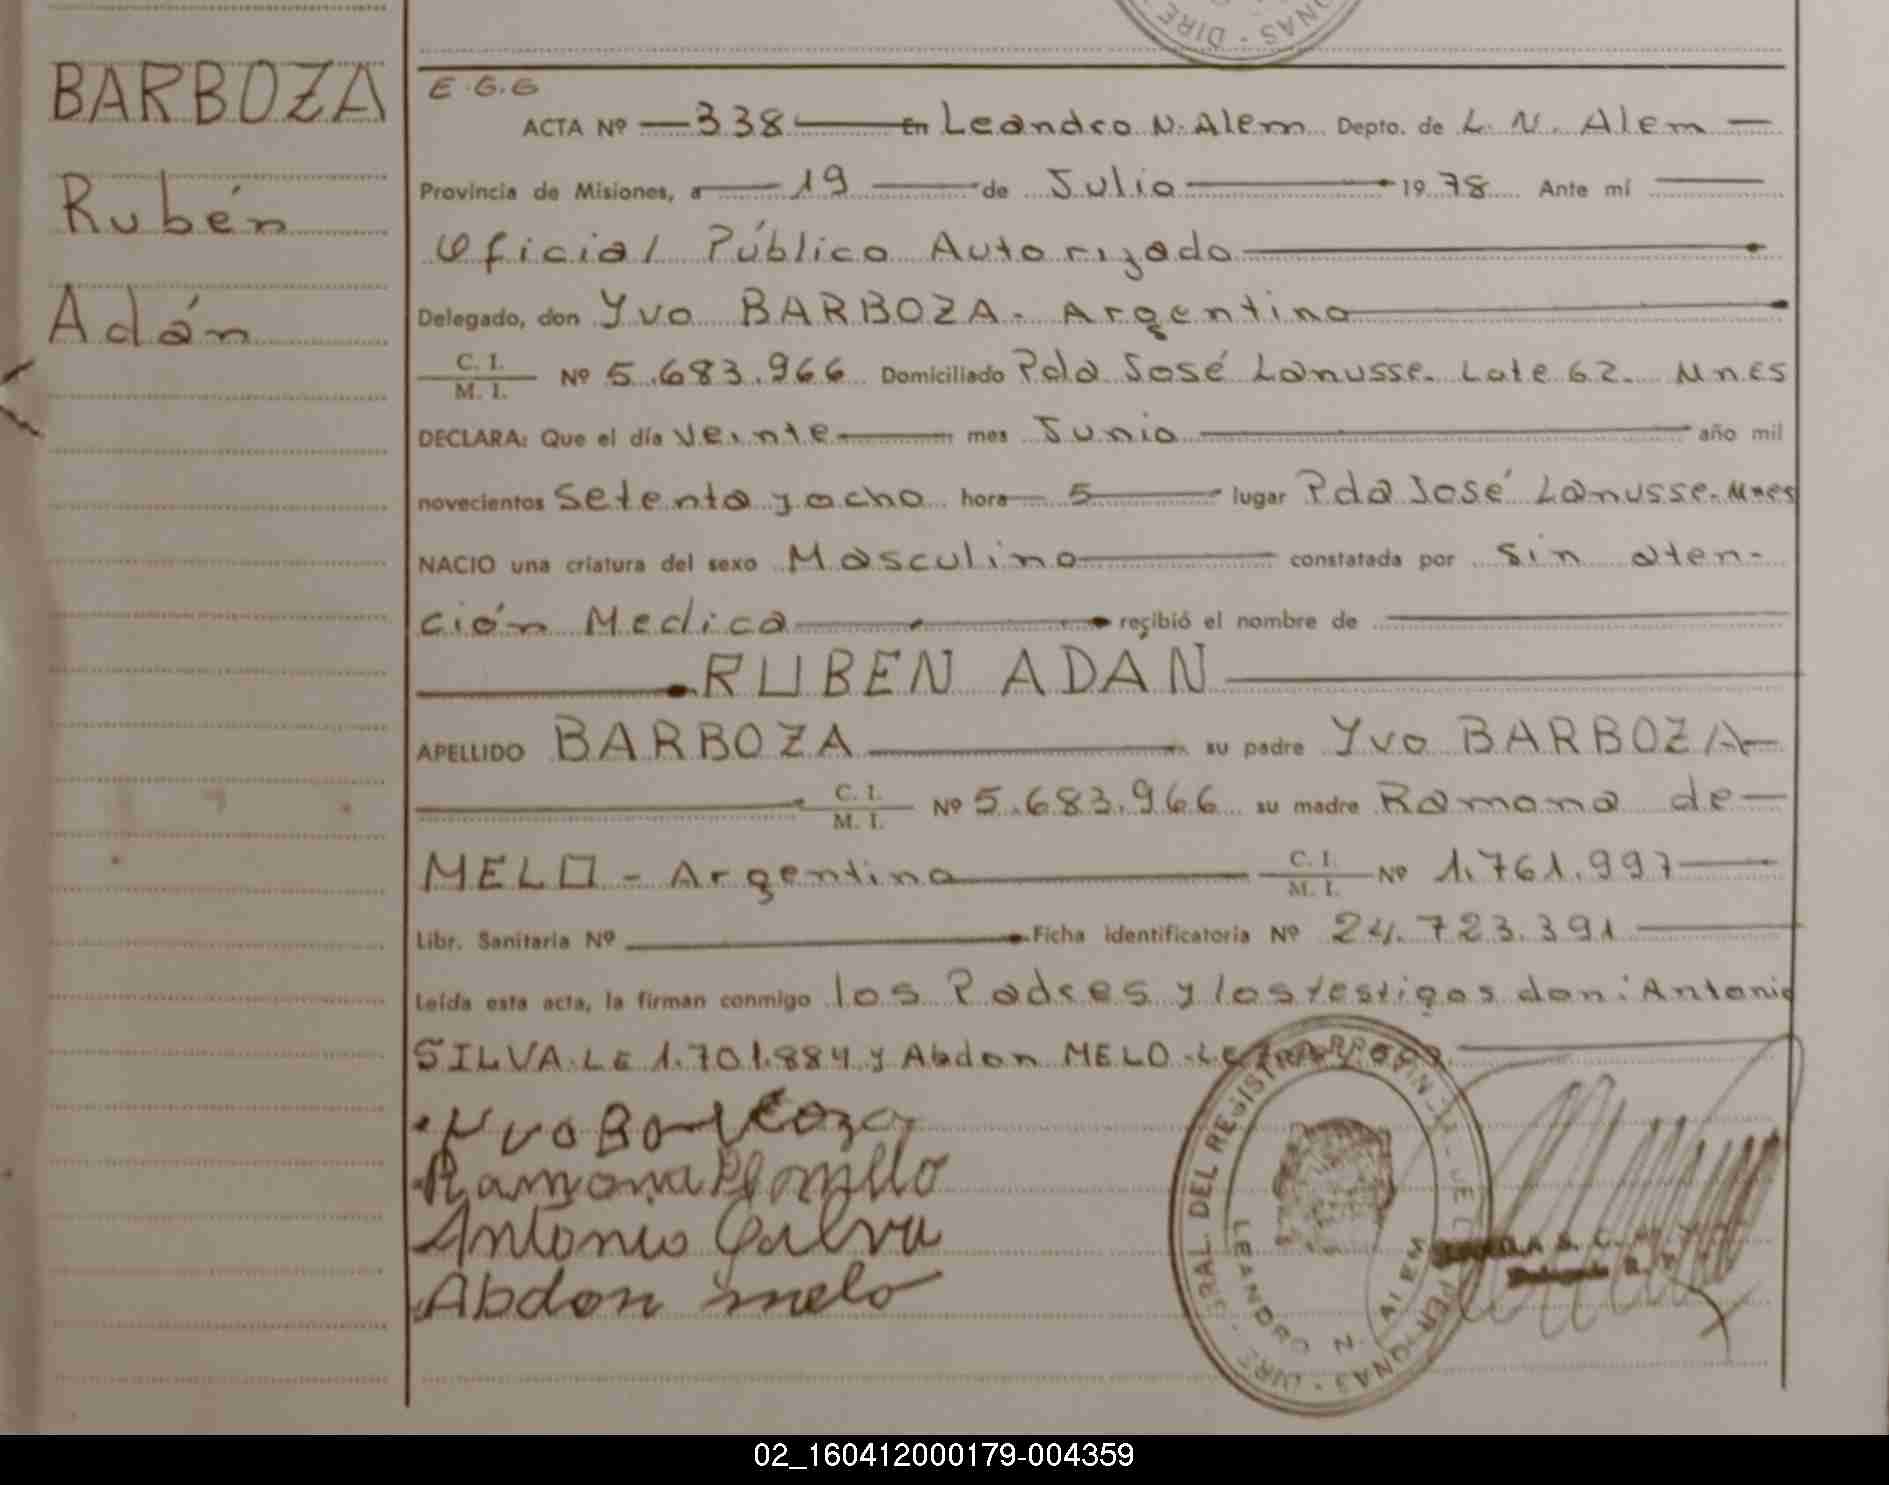 BARBOZA
Rubén
Adán
E.G.G
ACTA Nº 338 En Leandro N. Alem Depto. de L. N. Alem
Provincia de Misiones, a 19 de Julio 1978 Ante mí
Oficial Público Autorizado
Delegado, don Yvo BARBOZA - Argentino
C. I.
M. I. Nº 5.683.966 Domiciliado Pda José Lanusse. Lote 62. Mnes
DECLARA: Que el día veinte mes Junio año mil
novecientos setenta y ocho hora 5 lugar Pda José Lanusse. Mnes
NACIO una criatura del sexo Masculino constatada por sin aten-
ción Medica recibió el nombre de
RUBEN ADÁN
APELLIDO BARBOZA su padre Yvo BARBOZA
C. I.
M. I. Nº 5.683.966 su madre Ramona de
MELO - Argentina C. I.
M. I. Nº 1.761.997
Libr. Sanitaria Nº Ficha identificatoria Nº 24.723.391
Leída esta acta, la firman conmigo los Padres y los testigos don: Antonio
SILVA. LE 1.701.884 y Abdon MELO - LE
Yvo Barboza
Ramona de melo
Antonio Silva
Abdon melo
GRAL. DEL REGISTRO PROVINCIAL DE PERSONAS - DIRE
LEANDRO N. ALEM
DIRE - ONAS
02_160412000179-004359